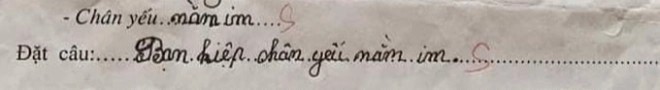 - Chân yếu..nằm im....S
Đặt câu:.....Bạn.hiệp.chân.yếi.nằm.im...S..............................